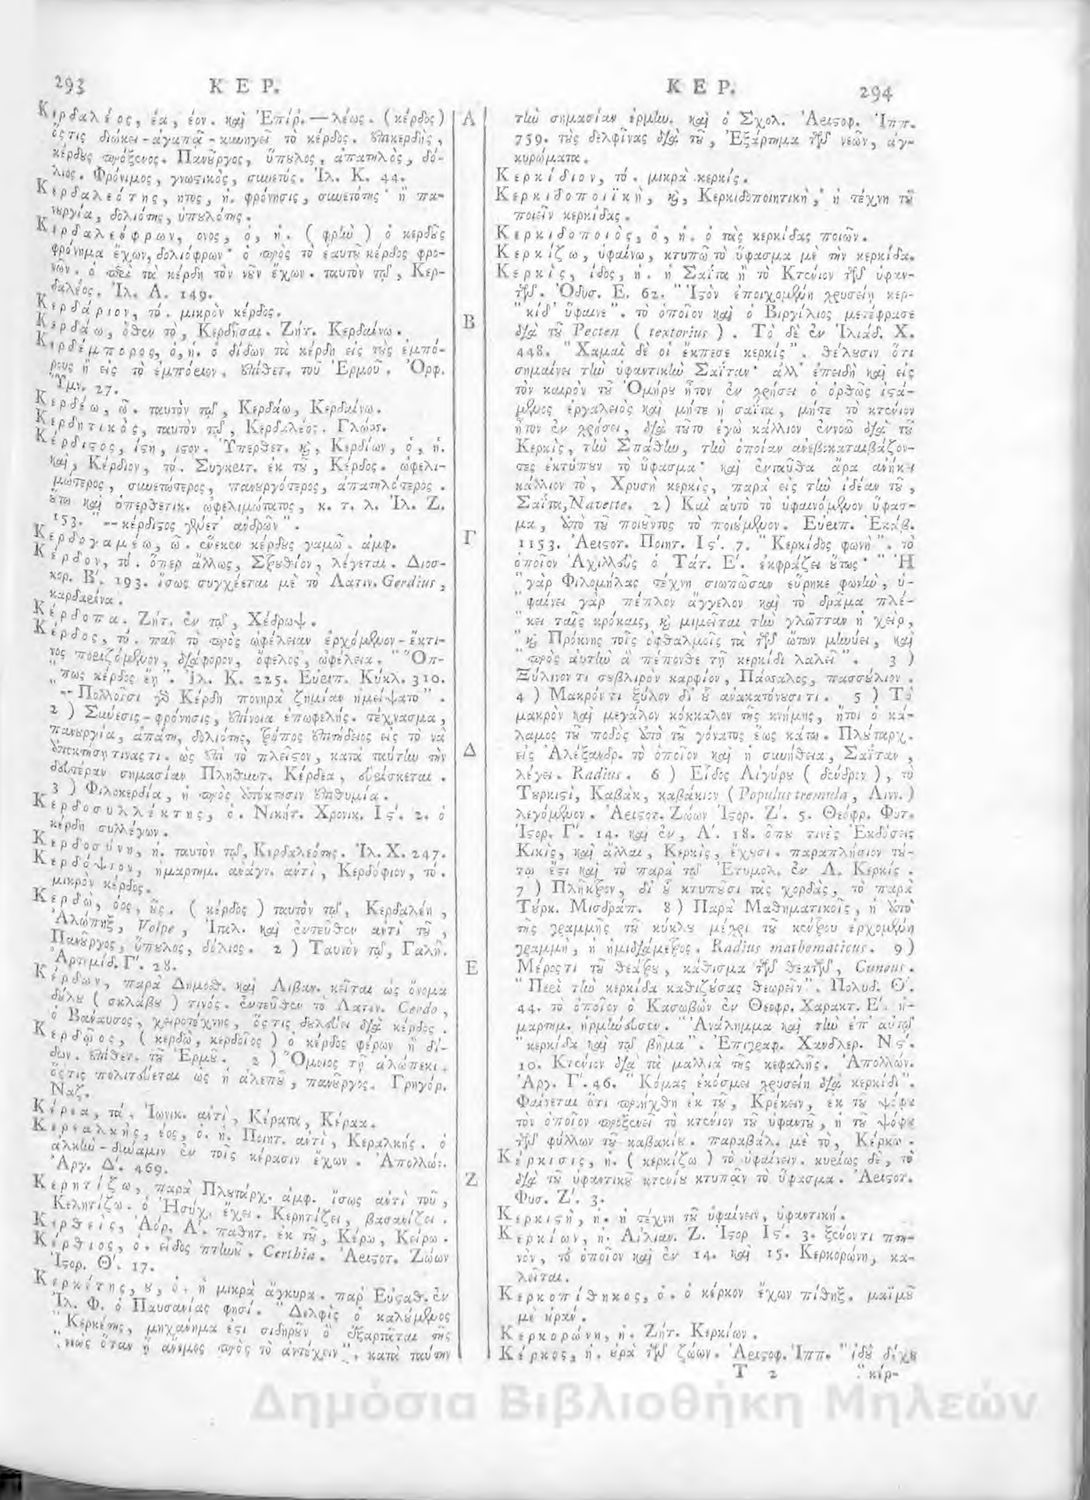 293 ΚΕΡ.
Κερδαλέος, έα, έον. καὶ Ἐπίρ. — λέως. (κέρδος)
ὅςτις διώκει - ἀγαπᾷ - κυνηγεῖ τὸ κέρδος. ἐπικερδής,
κέρδους πρόξενος. Πανοῦργος, ὕπουλος, ἀπατηλός, δό-
λιος. Φρόνιμος, γνωστικός, συνετός. Ἰλ. Κ. 44.
Κερδαλεότης, ητος, ἡ. φρόνησις, συνετότης· ἢ πα-
νουργία, δολιότης, ὑπουλότης.
Κερδαλεόφρων, ονος, ὁ, ἡ. (φρὴν) ὁ κερδοῦς
φρόνημα ἔχων, δολιόφρων· ὁ πρὸς τὸ ἑαυτοῦ κέρδος φρο-
νῶν. ὁ περὶ τὰ κέρδη τὸν νοῦν ἔχων. ταυτὸν τῷ, Κερ-
δαλέος. Ἰλ. Α. 149.
Κερδάριον, τό. μικρὸν κέρδος.
Κερδάω, ὅθεν τό, Κερδῆσαι. Ζήτ. Κερδαίνω.
Κερδέμπορος, ὁ, ἡ. ὁ δίδων τὰ κέρδη εἰς τοὺς ἐμπό-
ρους ἢ εἰς τὸ ἐμπόριον. ἐπίθετ. τοῦ Ἑρμοῦ. Ὀρφ.
Ὕμν. 27.
Κερδέω, ῶ. ταυτὸν τῷ, Κερδάω, Κερδαίνω.
Κερδητικός, ταυτὸν τῷ, Κερδαλέος. Γλῶσς.
Κέρδιστος, ίστη, ιστον. Ὑπερθετ. καὶ, Κερδίων, ὁ, ἡ.
καὶ, Κέρδιον, τό. Συγκριτ. ἐκ τοῦ, Κέρδος. ὠφελι-
μώτερος, συνετώτερος, πανουργότερος, ἀπατηλότερος.
οὕτω καὶ ὑπερθετικ. ὠφελιμώτατος, κ. τ. λ. Ἰλ. Ζ.
153. "-- κέρδιστος γένετ' ἀνδρῶν".
Κερδογαμέω, ῶ. ἕνεκεν κέρδους γαμῶ. ἀμφ.
Κέρδον, τό. ὅπερ ἄλλως, Στρούθιον, λέγεται. Διοσ-
κορ. Β'. 193. ἴσως συγχέεται μὲ τὸ Λατιν. Gerdius,
καρδαμίνα.
Κέρδοπα. Ζήτ. ἐν τῷ, Χέδρωψ.
Κέρδος, τό. πᾶν τὸ πρὸς ὠφέλειαν ἐρχόμενον - ἔκτι-
νος ποριζόμενον, διάφορον, ὄφελος, ὠφέλεια. "Ὅπ-
"πως κέρδος ἔῃ". Ἰλ. Κ. 225. Εὐριπ. Κύκλ. 310.
"-- Πολλοῖσι γὰρ Κέρδη πονηρὰ ζημίαν ἠμείψατο".
2) Σύνεσις - φρόνησις, ἐπίνοια ἐπωφελής. τέχνασμα,
πανουργία, ἀπάτη, δολιότης, τρόπος ἐπιτήδειος εἰς τὸ νὰ
ἀποκτήσῃ τινάς τι. ὡς ἐπὶ τὸ πλεῖστον, κατὰ ταύτην τὴν
δευτέραν σημασίαν Πληθυντ. Κέρδεα, εὑρίσκεται.
3) Φιλοκερδία, ἡ πρὸς ἀπόκτησιν ἐπιθυμία.
Κερδοσυλλέκτης, ὁ. Νικήτ. Χρονικ. Ις'. 2. ὁ
κέρδη συλλέγων.
Κερδοσύνη, ἡ. ταυτὸν τῷ, Κερδαλεότης. Ἰλ. Χ. 247.
Κερδόψιον, ἡμαρτημ. ἀνάγν. ἀντί, Κερδύφιον, τό.
μικρὸν κέρδος.
Κερδώ, όος, οῦς. (κέρδος) ταυτὸν τῷ, Κερδαλέη,
Ἀλώπηξ, Volpe, Ἰταλ. καὶ ἐντεῦθεν ἀντὶ τοῦ,
Πανοῦργος, ὕπουλος, δόλιος. 2) Ταυτὸν τῷ, Γαλῆ.
Ἀρτεμίδ. Γ'. 28.
Κέρδων, παρὰ Δημοσθ. καὶ Λιβαν. κεῖται ὡς ὄνομα
δούλου (σκλάβου) τινός. ἐντεῦθεν τὸ Λατιν. Cerdo,
ὁ Βάναυσος, χειροτέχνης, ὅςτις δουλεύει διὰ κέρδος.
Κερδῷος, (κερδώ, κερδοῖος) ὁ κέρδος φέρων ἢ δί-
δων. ἐπίθετ. τοῦ Ἑρμοῦ. 2) Ὅμοιος τῇ ἀλώπεκι.
ὅςτις πολιτεύεται ὡς ἡ ἀλεποῦ, πανοῦργος. Γρηγόρ.
Ναζ.
Κέρεα, τά. Ἰωνικ. ἀντί, Κέρατα, Κέραα.
Κερεαλκής, έος, ὁ. ἡ. Ποιητ. ἀντί, Κεραλκής. ὁ
ἀλκὴν - δύναμιν ἐν τοῖς κέρασιν ἔχων. Ἀπολλών.
Ἀργ. Δ'. 469.
Κερητίζω, παρὰ Πλουτάρχ. ἀμφ. ἴσως ἀντὶ τοῦ,
Κελητίζω. ὁ Ἡσύχ. ἔχει. Κερητίζει, βασανίζει.
Κερθείς, Ἀόρ. Α'. παθητ. ἐκ τοῦ, Κέρω, Κείρω.
Κέρθιος, ὁ. εἶδος πτηνοῦ. Certhia. Ἀριστοτ. Ζώων
Ἱστορ. Θ'. 17.
Κερκέτης, ου, ὁ. ἡ μικρὰ ἄγκυρα. παρ' Εὐσταθ. ἐν
Ἰλ. Φ. ὁ Παυσανίας φησί. "Δελφὶς ὁ καλούμενος
"Κερκέτης, μηχάνημά ἐστι σιδηροῦν ὃ ἐξαρτᾶται τῆς
"νεὼς ὅταν ᾖ ἄνεμος πρὸς τὸ ἀντέχειν". κατὰ ταύτην
Α
Β
Γ
Δ
Ε
Ζ
ΚΕΡ. 294
τὴν σημασίαν ἑρμην. καὶ ὁ Σχολ. Ἀριστοφ. Ἱππ.
759. τοὺς δελφῖνας διὰ τοῦ, Ἐξάρτημα τῶν νεῶν, ἀγ-
κυρώματα.
Κερκίδιον, τό. μικρὰ κερκίς.
Κερκιδοποιϊκή, καὶ, Κερκιδοποιητική, ἡ τέχνη τοῦ
ποιεῖν κερκίδας.
Κερκιδοποιός, ὁ, ἡ. ὁ τὰς κερκίδας ποιῶν.
Κερκίζω, ὑφαίνω, κτυπῶ τὸ ὕφασμα μὲ τὴν κερκίδα.
Κερκίς, ίδος, ἡ. ἡ Σαΐτα ἢ τὸ Κτένιον τῶν ὑφαν-
τῶν. Ὀδυσ. Ε. 62. "Ἱστὸν ἐποιχομένη χρυσείῃ κερ-
"κίδ' ὕφαινε". τὸ ὁποῖον καὶ ὁ Βιργίλιος μετέφρασε
διὰ τοῦ Pecten (textorius). Τὸ δὲ ἐν Ἰλιάδ. Χ.
448. "Χαμαὶ δέ οἱ ἔκπεσε κερκίς". θέλουσιν ὅτι
σημαίνει τὴν ὑφαντικὴν Σαΐταν· ἀλλ' ἐπειδὴ καὶ εἰς
τὸν καιρὸν τοῦ Ὁμήρου ἦτον ἐν χρήσει ὁ ὀρθῶς ἱστά-
μενος ἐργαλειὸς καὶ μήτε ἡ σαΐτα, μήτε τὸ κτένιον
ἦτον ἐν χρήσει, διὰ τοῦτο ἐγὼ κάλλιον ἐννοῶ διὰ τοῦ
Κερκίς, τὴν Σπάθην, τὴν ὁποίαν ἀνεβοκαταιβάζον-
τες ἐκτύπουν τὸ ὕφασμα· καὶ ἐνταῦθα ἄρα ἀνήκει
κάλλιον τό, Χρυσῆ κερκίς, παρὰ εἰς τὴν ἰδέαν τοῦ,
Σαΐτα, Navette. 2) Καὶ αὐτὸ τὸ ὑφαινόμενον ὕφασ-
μα, ἀπὸ τοῦ ποιοῦντος τὸ ποιούμενον. Εὐριπ. Ἑκάβ.
1153. Ἀριστοτ. Ποιητ. Ις'. 7. "Κερκίδος φωνή". τὸ
ὁποῖον Ἀχιλλεὺς ὁ Τάτ. Ε'. ἐκφράζει οὕτως· "Ἡ
"γὰρ Φιλομήλας τέχνη σιωπῶσαν εὕρηκε φωνήν, ὑ-
"φαίνει γὰρ πέπλον ἄγγελον καὶ τὸ δρᾶμα πλέ-
"κει ταῖς κρόκαις, καὶ μιμεῖται τὴν γλῶτταν ἡ χείρ,
"καὶ Πρόκνης τοῖς ὀφθαλμοῖς τὰ τῶν ὤτων μηνύει, καὶ
"πρὸς αὐτὴν ἃ πέπονθε τῇ κερκίδι λαλεῖ". 3)
Ξύλινόν τι σουβλιρὸν καρφίον, Πάσσαλος, πασσούλιον.
4) Μακρόν τι ξύλον δι' οὗ ἀνακατόνουσί τι. 5) Τὸ
μακρὸν καὶ μεγάλον κόκκαλον τῆς κνήμης, ἤτοι ὁ κά-
λαμος τοῦ ποδὸς ἀπὸ τοῦ γόνατος ἕως κάτω. Πλουταρχ.
εἰς Ἀλέξανδρ. τὸ ὁποῖον καὶ ἡ συνήθεια, Σαΐταν,
λέγει. Radius. 6) Εἶδος Αἰγείρου (δένδρου), τὸ
Τουρκιστί, Καβάκ, καβάκιον (Populus tremula, Λινν.)
λεγόμενον. Ἀριστοτ. Ζώων Ἱστορ. Ζ'. 5. Θεόφρ. Φυτ.
Ἱστορ. Γ'. 14. καὶ ἐν, Δ'. 18. ὅπου τινὲς Ἐκδόσεις
Κικίς, καὶ ἄλλαι, Κερκίς, ἔχουσι. παραπλήσιον τού-
τῳ ἐστὶ καὶ τὸ παρὰ τῷ Ἐτυμολ. ἐν Λ. Κερκίς.
7) Πλῆκτρον, δι' οὗ κτυποῦσι τὰς χορδάς, τὸ παρὰ
Τούρκ. Μισδράπ. 8) Παρὰ Μαθηματικοῖς, ἡ ἀπὸ
τῆς γραμμῆς τοῦ κύκλου μέχρι τοῦ κέντρου ἐρχομένη
γραμμή, ἡ ἡμιδιάμετρος. Radius mathematicus. 9)
Μέρος τι τοῦ θεάτρου, κάθισμα τῶν θεατῶν, Cuneus.
"Περὶ τὴν κερκίδα καθιζούσας θεωρεῖν". Πολυδ. Θ'.
44. τὸ ὁποῖον ὁ Κασωβὼν ἐν Θεοφρ. Χαρακτ. Ε'. ἡ-
μαρτημ. ἡρμήνευσεν. "Ἀνάλημμα καὶ τὴν ἐπ' αὐτῷ
"κερκίδα καὶ τῷ βῆμα". Ἐπιγραφ. Χανδλερ. Νς'.
10. Κτένιον διὰ τὰ μαλλιὰ τῆς κεφαλῆς. Ἀπολλων.
Ἀργ. Γ'. 46. "Κόμας ἐκόσμει χρυσείῃ διὰ κερκίδι".
Φαίνεται ὅτι παρήχθη ἐκ τοῦ, Κρέκειν, ἐκ τοῦ ψόφου
τὸν ὁποῖον προξενεῖ τὸ κτένιον τοῦ ὑφαντοῦ, ἢ τοῦ ψόφου
τῶν φύλλων τοῦ καβακίου. παραβάλ. μὲ τό, Κέρκω.
Κέρκισις, ἡ. (κερκίζω) τὸ ὑφαίνειν. κυρίως δέ, τὸ
διὰ τοῦ ὑφαντικοῦ κτενίου κτυπᾶν τὸ ὕφασμα. Ἀριστοτ.
Φυσ. Ζ'. 3.
Κερκιστή, ἡ. ἡ τέχνη τοῦ ὑφαίνειν, ὑφαντική.
Κερκίων, ἡ. Αἰλιαν. Ζ. Ἱστορ. Ις'. 3. ξένον τι πτη-
νόν, τὸ ὁποῖον καὶ ἐν 14. καὶ 15. Κερκορώνη, κα-
λεῖται.
Κερκοπίθηκος, ὁ. ὁ κέρκον ἔχων πίθηξ. μαϊμοῦ
μὲ οὐράν.
Κερκορώνη, ἡ. Ζήτ. Κερκίων.
Κέρκος, ἡ. οὐρὰ τῶν ζώων. Ἀριστοφ. Ἱππ. "ἰδοὺ δέχου
Τ 2 "κέρ-
Δημόσια Βιβλιοθήκη Μηλεών